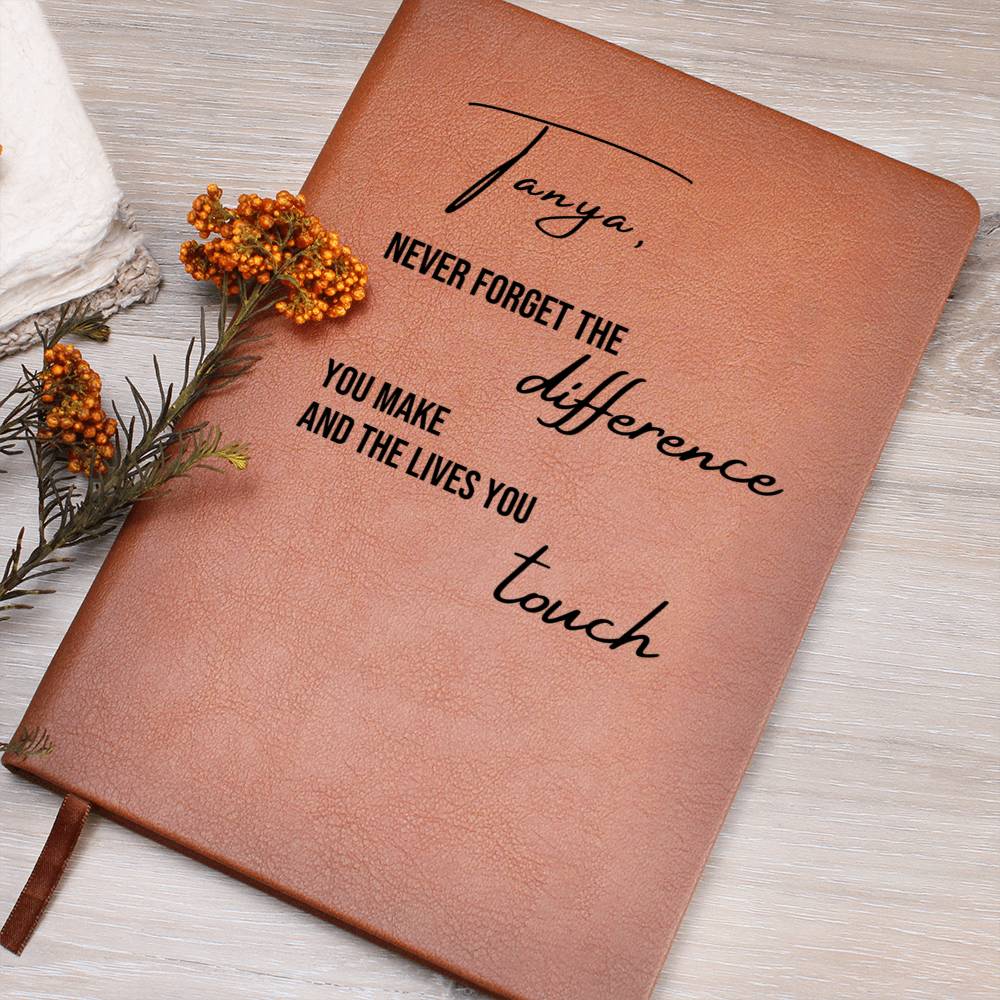 Tanya,
NEVER FORGET THE
difference
YOU MAKE
AND THE LIVES YOU
touch